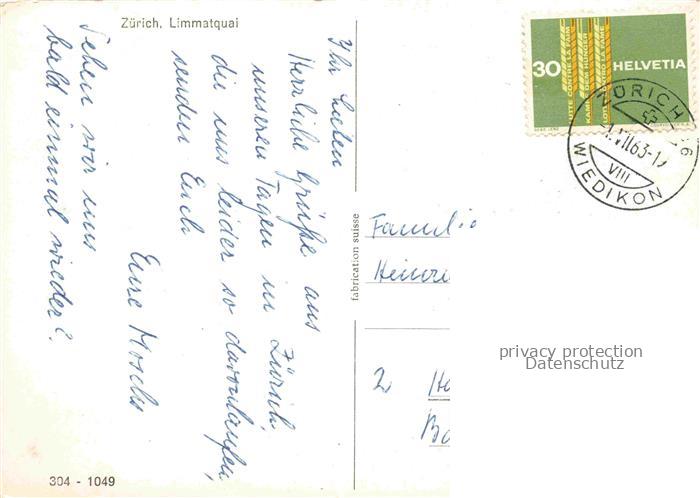 Zürich, Limmatquai
Ihr Lieben
Herzliche Grüße aus
unseren Tagen in Zürich,
die uns leider so davonlaufen,
senden Euch
Eure
Sehen wir uns
bald einmal wieder?
304 - 1049
fabrication suisse
30
HELVETIA
LUTTE CONTRE LA FAIM
ZÜRICH
63-1
VIII
WIEDIKON
Famili
Heinri
2
Ha
privacy protection
Datenschutz